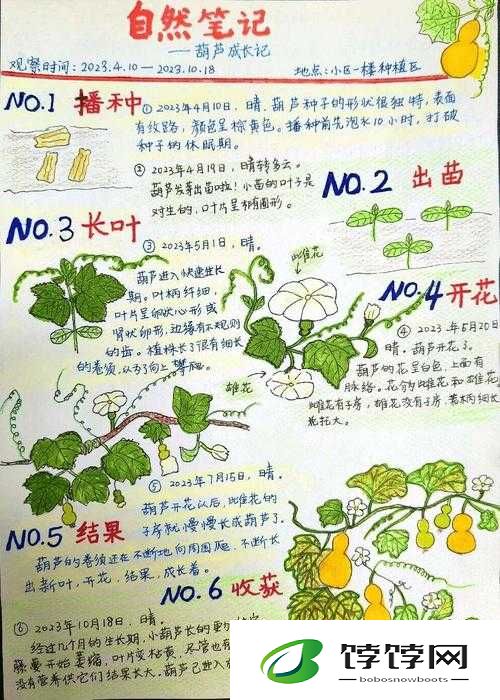 自然笔记
——葫芦成长记
观察时间：2023.4.10—2023.10.18
地点：小区一楼种植区
NO.1 播种
① 2023年4月10日，晴。葫芦种子的形状很独特，表面
有纹路，颜色呈棕黄色。播种前先泡水10小时，打破
种子的休眠期。
② 2023年4月19日，晴转多云。
葫芦发芽出苗啦！小苗的叶子是
对生的，叶片呈卵圆形。
NO.2 出苗
NO.3 长叶
③ 2023年5月1日，晴。
葫芦进入快速生长
期。叶柄纤细，
叶片呈卵状心形或
肾状卵形，边缘有不规则
的齿。植株长了很有细长
的卷须，以利向上攀爬。
雌花
雄花
NO.4 开花
④ 2023年5月20日
晴。葫芦开花了。
葫芦的花呈白色，上面有
脉络。花分雌花和雄花
雌花有子房，雄花没有子房，花柄细长
NO.5 结果
⑤ 2023年7月15日，晴。
葫芦开花以后，雌花的
子房就慢慢长成葫芦了。
葫芦的卷须还在不断地向周围爬，不断长
出新叶，开花，结果，成长着。
NO.6 收获
⑥ 2023年10月18日，晴。
经过几个月的生长期，小葫芦长的更
藤蔓开始萎缩，叶片变枯黄，尽管也有
没有营养供它们结果长大。葫芦已进入
饽饽网
bobosnowboots.com
饽饽网
bobosnowboots.com